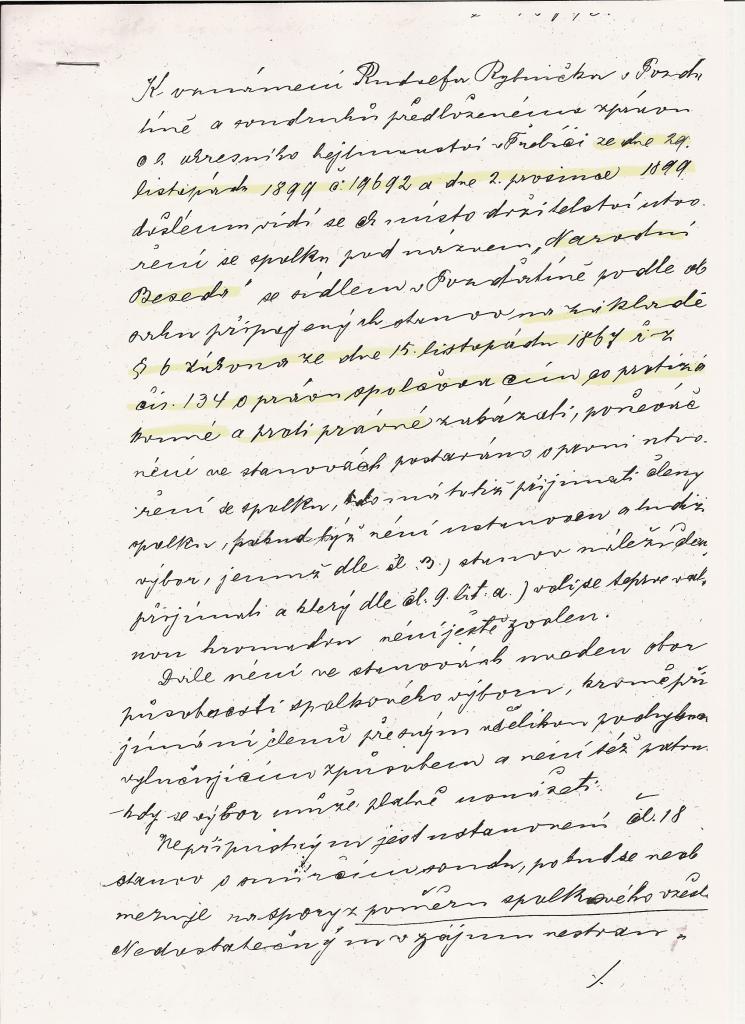 K oznámení Rudolfa Rybníčka v Pozďa
tíně a soudruhů předloženému zprávou
c.k. okresního hejtmanství v Třebíči ze dne 29.
listopadu 1899 č. 19692 a dne 2. prosince 1899
došlému vidí se ck místodržitelství utvo-
ření se spolku pod názvem „Narodní
Beseda" se sídlem v Pozďatíně podle ob
sahu připojených stanov na základě
§ 6 zákona ze dne 15. listopadu 1867 ř. z
čís. 134 o právu spolčovacím co protizá
konné a protiprávné zakázati, poněvač
není ve stanovách postaráno o první utvo-
ření se spolku, kdo má totiž přijímati členy
spolku, pokud týž není ustanoven a tudíž
výbor, jemuž dle čl. 3.) stanov náleží členy
přijímati a který dle čl. 9. lit. a.) volí se teprve val-
nou hromadou není ještě zvolen.
Dále není ve stanovách uveden obor
působnosti spolkového výboru, kromě při
jímání členů přesným všelikou pochybnos
vylučujícím způsobem a není též patrno
kdy se výbor může platně usnášeti.
Nepřípustným jest ustanovení čl. 18
stanov o smírčím soudu, pokud se neob
mezuje na spory z poměru spolkového vzešl
Nedostatečným v zájmu nestran-
./.